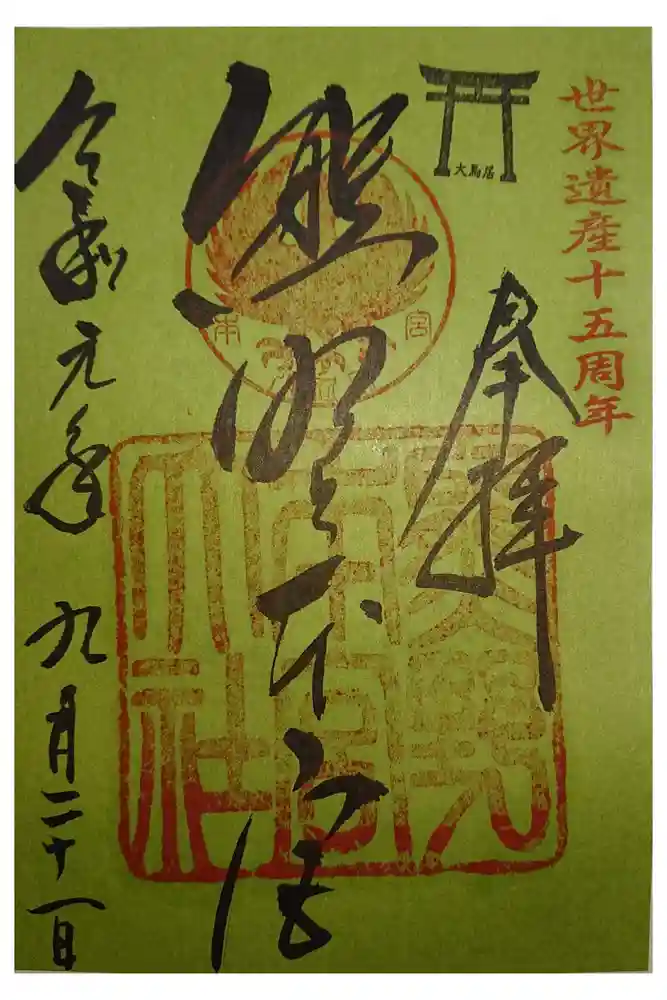 世界遺産十五周年
大鳥居
奉拝
熊野本宮
熊野
本宮
大社
令和元年 九月二十一日